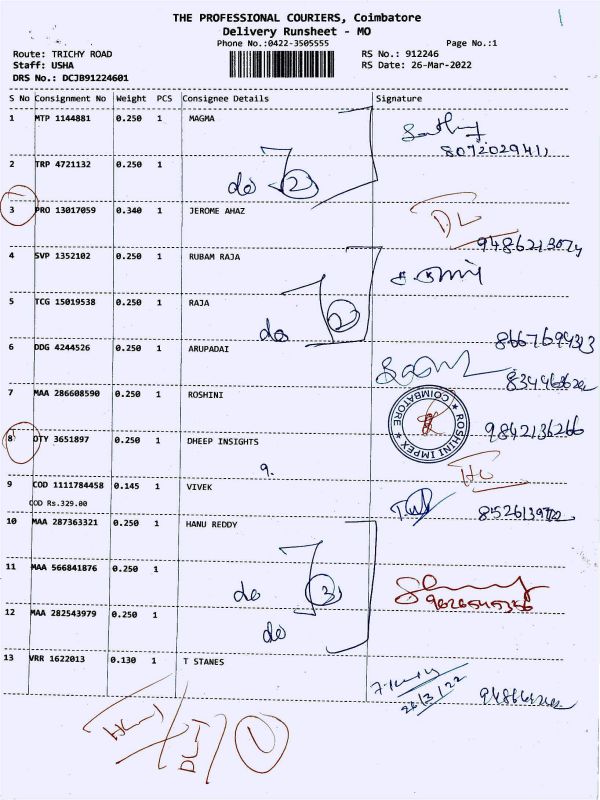 THE PROFESSIONAL COURIERS, Coimbatore
Delivery Runsheet - MO
Phone No.:0422-3505555
Page No.:1
Route: TRICHY ROAD
RS No.: 912246
Staff: USHA
RS Date: 26-Mar-2022
DRS No.: DCJB91224601
S No Consignment No Weight PCS Consignee Details Signature
1 MTP 1144881 0.250 1 MAGMA
8072029411
2 TRP 4721132 0.250 1
do 2
3 PRO 13017059 0.340 1 JEROME AHAZ
DL
9486213074
4 SVP 1352102 0.250 1 RUBAM RAJA
5 TCG 15019538 0.250 1 RAJA
do 2
8667694313
6 DDG 4244526 0.250 1 ARUPADAI
7 MAA 286608590 0.250 1 ROSHINI
ROSHINI IMPEX
COIMBATORE
9842136266
8 OTY 3651897 0.250 1 DHEEP INSIGHTS
9.
9 COD 1111784458 0.145 1 VIVEK
COD Rs.329.00
10 MAA 287363321 0.250 1 HANU REDDY
11 MAA 566841876 0.250 1
do 3
9626545356
12 MAA 282543979 0.250 1
do
13 VRR 1622013 0.130 1 T STANES
26/3/22
1